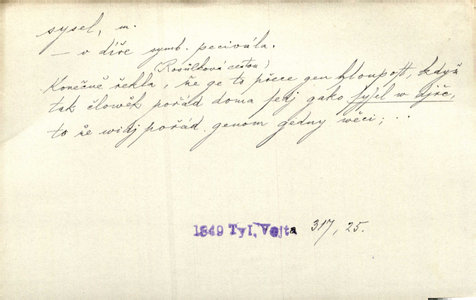 sysel, m.
— v díře symb. pecivála.
(Rosůlková cestou)
Konečně řekla, že ge to přece gen hloupost, když
tak člowěk pořád doma sedj gako sysel w djře,
to že widj pořád genom gedny wěci; ..
1849 Tyl, Vojta 317, 25.